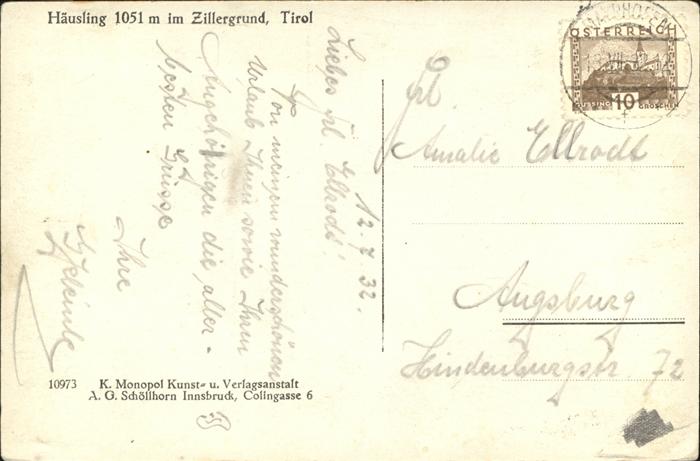 Häusling 1051 m im Zillergrund, Tirol
12.7.32.
Liebes Frl. Ellrodt!
Von meinem wunderschönen
Urlaub Ihnen sowie Ihren
Angehörigen die aller-
besten Grüsse
Ihre
Frl.
Amalie Ellrodt
Augsburg
Hindenburgstr 72
ÖSTERREICH
GÜSSING 10 GROSCHEN
10973 K. Monopol Kunst- u. Verlagsanstalt
A. G. Schöllhorn Innsbruck, Colingasse 6